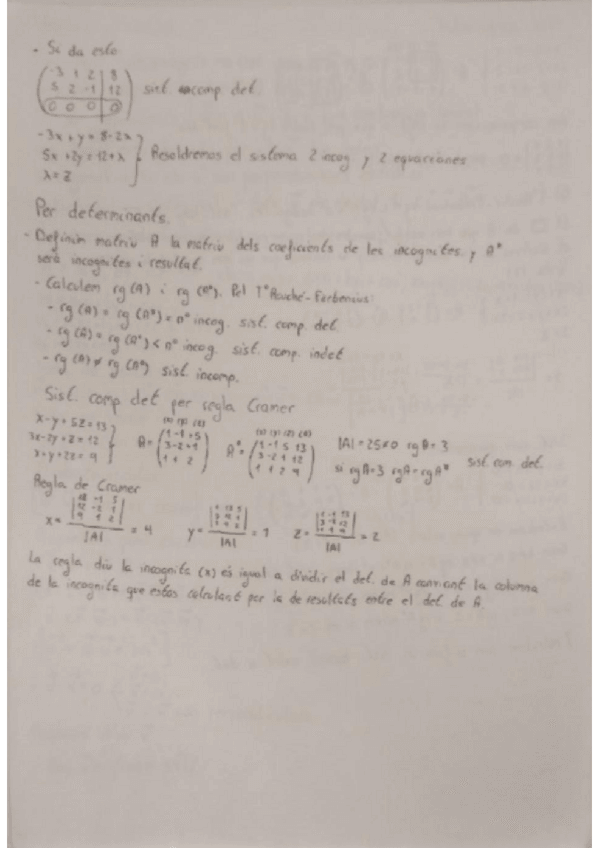 - Si da esto
(-3 1 2 | 8
5 2 -1 | 12 sist. comp. det.
0 0 0 | 0)
-3x + y = 8 - 2λ
5x + 2y = 12 + λ } Resoldremos el sistema 2 incog y 2 equaciones
λ = z
Per determinants.
- Definim matriu A la matriu dels coeficients de les incognites, y A*
será incognites i resultat.
- Calculem rg (A) i rg (A*). Pel Tª Rouché-Frobenius:
- rg (A) = rg (A*) = nº incog. sist. comp. det
- rg (A) = rg (A*) < nº incog. sist. comp. indet
- rg (A) ≠ rg (A*) sist. incomp.
Sist. comp det per regla Cramer
(x) (y) (z) (x) (y) (z) (R)
x - y + 5z = 13
3x - 2y + z = 12
x + y + 2z = 9
A = (1 -1 +5
3 -2 +1
1 1 2)
A* = (1 -1 5 13
3 -2 1 12
1 1 2 9)
|A| = 25 ≠ 0 rg A = 3
si rg A = 3 rg A = rg A* sist. com. det.
Regla de Cramer
x = |13 -1 5
12 -2 1
9 1 2| / |A| = 4
y = |1 13 5
3 12 1
1 9 2| / |A| = 1
z = |1 -1 13
3 -2 12
1 1 9| / |A| = 2
La regla diu la incognita (x) es igual a dividir el det. de A canviant la columna
de la incognita que estas calculant per la de resultats entre el det de A.